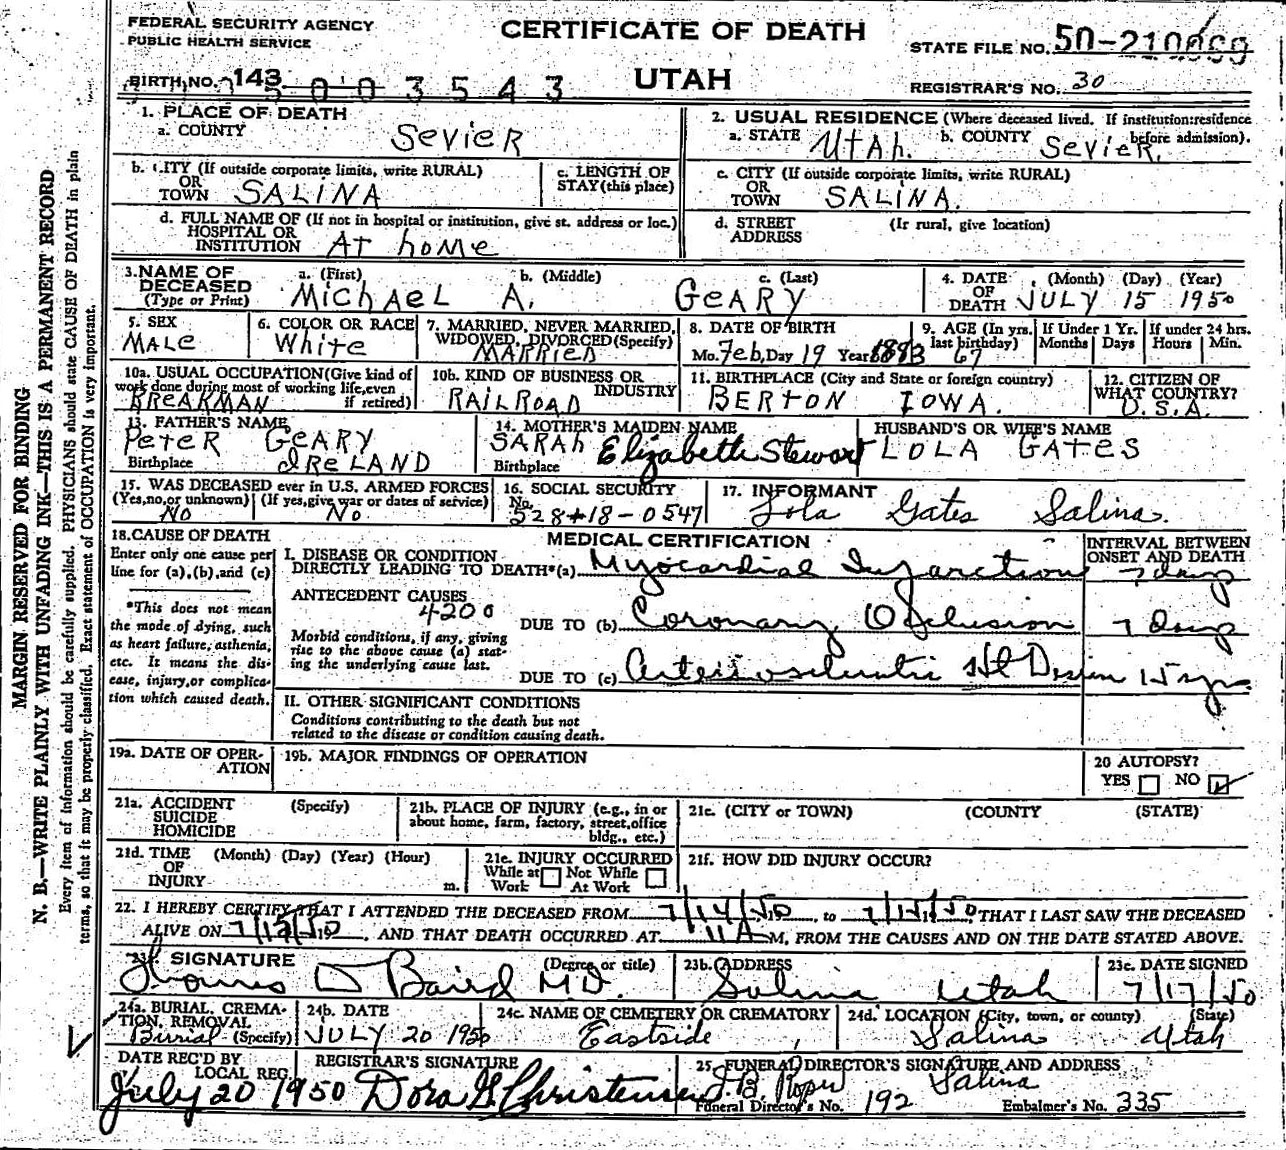 FEDERAL SECURITY AGENCY
PUBLIC HEALTH SERVICE
CERTIFICATE OF DEATH
STATE FILE NO. 50-210
BIRTH NO. 143
003543
UTAH
REGISTRAR'S NO. 30
MARGIN RESERVED FOR BINDING
N. B.—WRITE PLAINLY WITH UNFADING INK—THIS IS A PERMANENT RECORD
Every item of information should be carefully supplied. PHYSICIANS should state CAUSE OF DEATH in plain
terms, so that it may be properly classified. Exact statement of OCCUPATION is very important.
1. PLACE OF DEATH
a. COUNTY SeviER
2. USUAL RESIDENCE (Where deceased lived. If institution:residence
before admission).
a. STATE UtAh. b. COUNTY SevieR.
b. CITY (If outside corporate limits, write RURAL)
OR
TOWN SALINA
c. LENGTH OF
STAY (this place)
c. CITY (If outside corporate limits, write RURAL)
OR
TOWN SALINA.
d. FULL NAME OF (If not in hospital or institution, give st. address or loc.)
HOSPITAL OR
INSTITUTION At home
d. STREET (If rural, give location)
ADDRESS
3. NAME OF
DECEASED
(Type or Print)
a. (First) b. (Middle) c. (Last)
MichAeL A. GeARY
4. DATE (Month) (Day) (Year)
OF
DEATH JULY 15 1950
5. SEX
MALe
6. COLOR OR RACE
White
7. MARRIED, NEVER MARRIED,
WIDOWED, DIVORCED (Specify)
MARRIED
8. DATE OF BIRTH
Mo. Feb, Day 19 Year 1883
9. AGE (In yrs.
last birthday)
67
If Under 1 Yr.
Months Days
If under 24 hrs.
Hours Min.
10a. USUAL OCCUPATION (Give kind of
work done during most of working life, even
if retired)
BREAKMAN
10b. KIND OF BUSINESS OR
INDUSTRY
RAILROAD
11. BIRTHPLACE (City and State or foreign country)
BERTON IOWA.
12. CITIZEN OF
WHAT COUNTRY?
U.S.A.
13. FATHER'S NAME
PeteR GeARY
Birthplace IReLAND
14. MOTHER'S MAIDEN NAME
SARAh Elizabeth Stewart
Birthplace
HUSBAND'S OR WIFE'S NAME
LOLA GATES
15. WAS DECEASED ever in U.S. ARMED FORCES
(Yes, no, or unknown) (If yes, give war or dates of service)
No No
16. SOCIAL SECURITY
No.
528-18-0547
17. INFORMANT
Lola Gates Salina.
18. CAUSE OF DEATH
Enter only one cause per
line for (a), (b), and (c)
*This does not mean
the mode of dying, such
as heart failure, asthenia,
etc. It means the dis-
ease, injury, or complica-
tion which caused death.
MEDICAL CERTIFICATION
INTERVAL BETWEEN
ONSET AND DEATH
I. DISEASE OR CONDITION
DIRECTLY LEADING TO DEATH*(a) Myocardial Infarction 7 days
ANTECEDENT CAUSES
4200
Morbid conditions, if any, giving
rise to the above cause (a) stat-
ing the underlying cause last.
DUE TO (b) Coronary Occlusion 7 days
DUE TO (c) Arteriosclerotic Ht Disease 15 yrs.
II. OTHER SIGNIFICANT CONDITIONS
Conditions contributing to the death but not
related to the disease or condition causing death.
19a. DATE OF OPER-
ATION
19b. MAJOR FINDINGS OF OPERATION
20 AUTOPSY?
YES NO
21a. ACCIDENT (Specify)
SUICIDE
HOMICIDE
21b. PLACE OF INJURY (e.g., in or
about home, farm, factory, street, office
bldg., etc.)
21c. (CITY or TOWN) (COUNTY) (STATE)
21d. TIME (Month) (Day) (Year) (Hour)
OF
INJURY m.
21e. INJURY OCCURRED
While at Not While
Work At Work
21f. HOW DID INJURY OCCUR?
22. I HEREBY CERTIFY THAT I ATTENDED THE DECEASED FROM 7/14/50, to 7/15/50 THAT I LAST SAW THE DECEASED
ALIVE ON 7/15/50, AND THAT DEATH OCCURRED AT 11 A M, FROM THE CAUSES AND ON THE DATE STATED ABOVE.
23a. SIGNATURE (Degree or title)
Thomas D Baird M.D.
23b. ADDRESS
Salina Utah
23c. DATE SIGNED
7/17/50
24a. BURIAL, CREMA-
TION, REMOVAL
Burial (Specify)
24b. DATE
JULY 20 1950
24c. NAME OF CEMETERY OR CREMATORY
Eastside
24d. LOCATION (City, town, or county) (State)
Salina Utah
DATE REC'D BY
LOCAL REG.
July 20 1950
REGISTRAR'S SIGNATURE
Dora G Christensen
25. FUNERAL DIRECTOR'S SIGNATURE AND ADDRESS
J.B. Roper Salina
Funeral Director's No. 192 Embalmer's No. 335